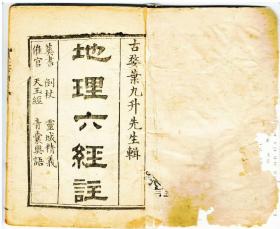 古婺葉九升先生輯
地理六經註
葬書 倒杖 靈城精義
催官 天玉經 青囊奧語